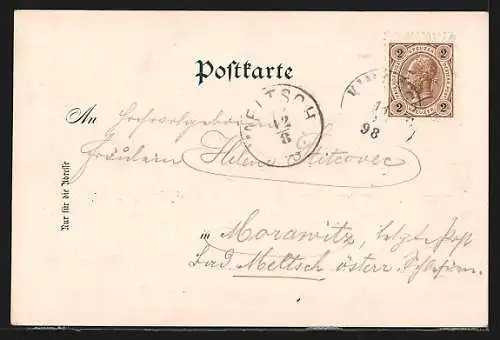 Postkarte
2 KREUZER 2
2 2
MELTSCH
12
8
98
An Hochwohlgeboren
Fräulein Helene
in Morawitz, letzte Post
Bad Meltsch österr. Schlesien.
Nur für die Adresse